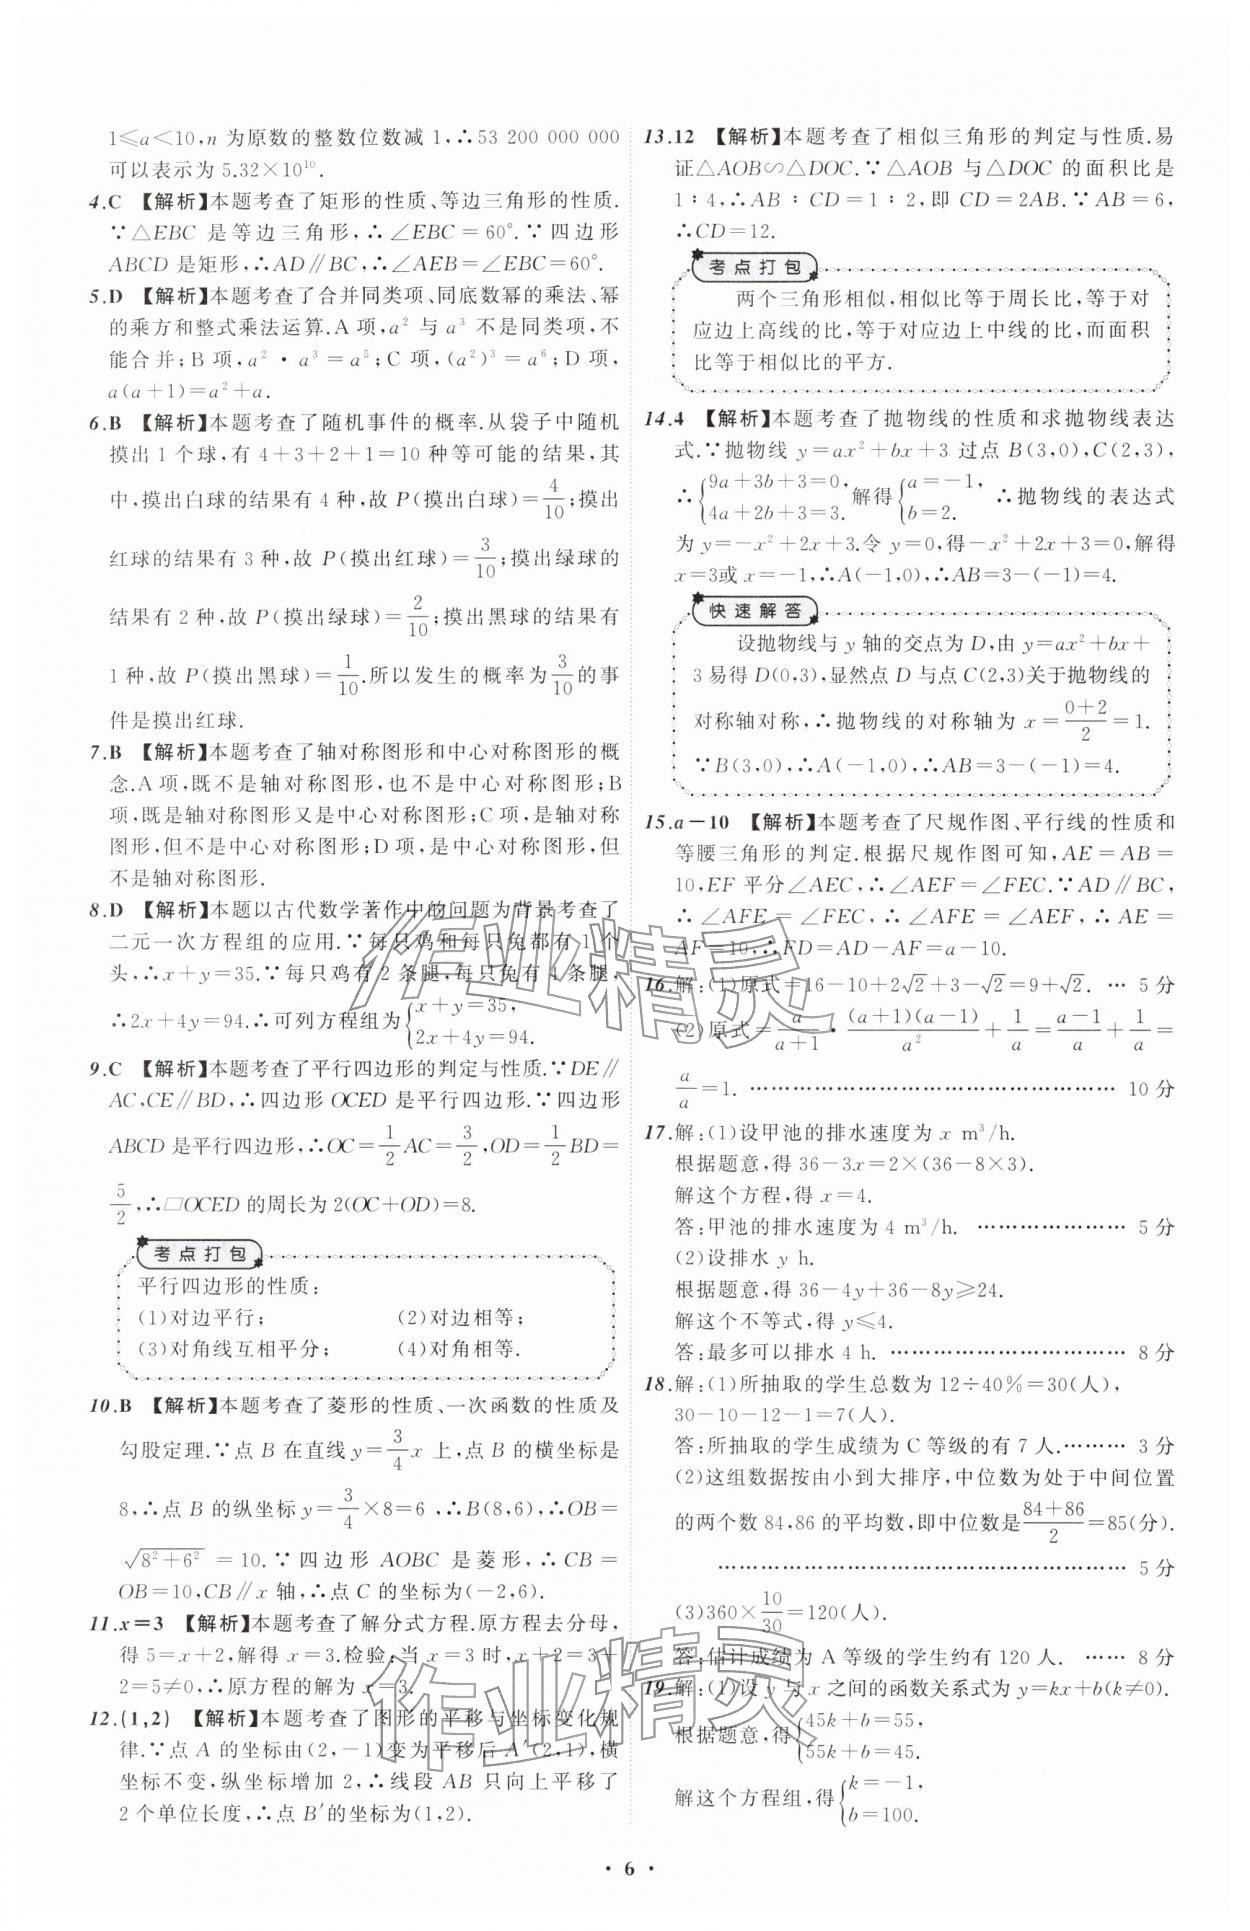 1≤a<10,n 为原数的整数位数减 1,∴53 200 000 000
可以表示为 5.32×10¹⁰.
4.C 【解析】本题考查了矩形的性质、等边三角形的性质.
∵△EBC 是等边三角形,∴∠EBC=60°.∵四边形
ABCD 是矩形,∴AD∥BC,∴∠AEB=∠EBC=60°.
5.D 【解析】本题考查了合并同类项、同底数幂的乘法、幂
的乘方和整式乘法运算.A 项,a² 与 a³ 不是同类项,不
能合并;B 项,a²·a³=a⁵;C 项,(a²)³=a⁶;D 项,
a(a+1)=a²+a.
6.B 【解析】本题考查了随机事件的概率.从袋子中随机
摸出 1 个球,有 4+3+2+1=10 种等可能的结果,其
中,摸出白球的结果有 4 种,故 P(摸出白球)=4/10;摸出
红球的结果有 3 种,故 P(摸出红球)=3/10;摸出绿球的
结果有 2 种,故 P(摸出绿球)=2/10;摸出黑球的结果有
1 种,故 P(摸出黑球)=1/10.所以发生的概率为3/10的事
件是摸出红球.
7.B 【解析】本题考查了轴对称图形和中心对称图形的概
念.A 项,既不是轴对称图形,也不是中心对称图形;B
项,既是轴对称图形又是中心对称图形;C 项,是轴对称
图形,但不是中心对称图形;D 项,是中心对称图形,但
不是轴对称图形.
8.D 【解析】本题以古代数学著作中的问题为背景考查了
二元一次方程组的应用.∵每只鸡和每只兔都有 1 个
头,∴x+y=35.∵每只鸡有 2 条腿,每只兔有 4 条腿,
∴2x+4y=94.∴可列方程组为{x+y=35, 2x+4y=94.
9.C 【解析】本题考查了平行四边形的判定与性质.∵DE∥
AC,CE∥BD,∴四边形 OCED 是平行四边形.∵四边形
ABCD 是平行四边形,∴OC=1/2AC=3/2,OD=1/2BD=
5/2,∴□OCED 的周长为 2(OC+OD)=8.
考点打包
平行四边形的性质:
(1)对边平行; (2)对边相等;
(3)对角线互相平分; (4)对角相等.
10.B 【解析】本题考查了菱形的性质、一次函数的性质及
勾股定理.∵点 B 在直线 y=3/4x 上,点 B 的横坐标是
8,∴点 B 的纵坐标 y=3/4×8=6,∴B(8,6),∴OB=
√(8²+6²)=10.∵四边形 AOBC 是菱形,∴CB=
OB=10,CB∥x 轴,∴点 C 的坐标为(-2,6).
11.x=3 【解析】本题考查了解分式方程.原方程去分母,
得 5=x+2,解得 x=3.检验:当 x=3 时,x+2=3+
2=5≠0,∴原方程的解为 x=3.
12.(1,2) 【解析】本题考查了图形的平移与坐标变化规
律.∵点 A 的坐标由(2,-1)变为平移后 A′(2,1),横
坐标不变,纵坐标增加 2,∴线段 AB 只向上平移了
2 个单位长度,∴点 B′的坐标为(1,2).
13.12 【解析】本题考查了相似三角形的判定与性质.易
证△AOB∽△DOC.∵△AOB 与△DOC 的面积比是
1∶4,∴AB∶CD=1∶2,即 CD=2AB.∵AB=6,
∴CD=12.
考点打包
两个三角形相似,相似比等于周长比,等于对
应边上高线的比,等于对应边上中线的比,而面积
比等于相似比的平方.
14.4 【解析】本题考查了抛物线的性质和求抛物线表达
式.∵抛物线 y=ax²+bx+3 过点 B(3,0),C(2,3),
∴{9a+3b+3=0, 4a+2b+3=3. 解得{a=-1, b=2. ∴抛物线的表达式
为 y=-x²+2x+3.令 y=0,得-x²+2x+3=0,解得
x=3或 x=-1,∴A(-1,0),∴AB=3-(-1)=4.
快速解答
设抛物线与 y 轴的交点为 D,由 y=ax²+bx+
3易得 D(0,3),显然点 D 与点 C(2,3)关于抛物线的
对称轴对称,∴抛物线的对称轴为 x=(0+2)/2=1.
∵B(3,0),∴A(-1,0),∴AB=3-(-1)=4.
15.a-10 【解析】本题考查了尺规作图、平行线的性质和
等腰三角形的判定.根据尺规作图可知,AE=AB=
10,EF 平分∠AEC,∴∠AEF=∠FEC.∵AD∥BC,
∴∠AFE=∠FEC,∴∠AFE=∠AEF,∴AE=
AF=10,∴FD=AD-AF=a-10.
16.解:(1)原式=16-10+2√2+3-√2=9+√2. … 5 分
(2)原式=a/(a+1)·(a+1)(a-1)/a²+1/a=(a-1)/a+1/a=
a/a=1. ……………………………………… 10 分
17.解:(1)设甲池的排水速度为 x m³/h.
根据题意,得 36-3x=2×(36-8×3).
解这个方程,得 x=4.
答:甲池的排水速度为 4 m³/h. ……………… 5 分
(2)设排水 y h.
根据题意,得 36-4y+36-8y≥24.
解这个不等式,得 y≤4.
答:最多可以排水 4 h. ………………………… 8 分
18.解:(1)所抽取的学生总数为 12÷40%=30(人),
30-10-12-1=7(人).
答:所抽取的学生成绩为 C 等级的有 7 人.……… 3 分
(2)这组数据按由小到大排序,中位数为处于中间位置
的两个数 84,86 的平均数,即中位数是(84+86)/2=85(分).
…………………………………………… 5 分
(3)360×10/30=120(人).
答:估计成绩为 A 等级的学生约有 120 人. …… 8 分
19.解:(1)设 y 与 x 之间的函数关系式为 y=kx+b(k≠0).
根据题意,得{45k+b=55, 55k+b=45.
解这个方程组,得{k=-1, b=100.
作业精灵
作业精灵
· 6 ·